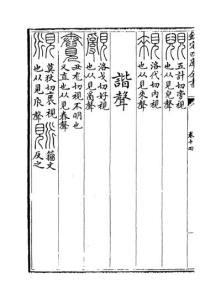 欽定四庫全書
卷十四
五計切旁視
也从見兒聲
洛代切內視
也从見來聲
諧聲
洛戈切好視
也从見𤔔聲
丑尨切視不明也
又直也从見舂聲
莫狄切衺視
也从見𠂢聲
籀文
反之